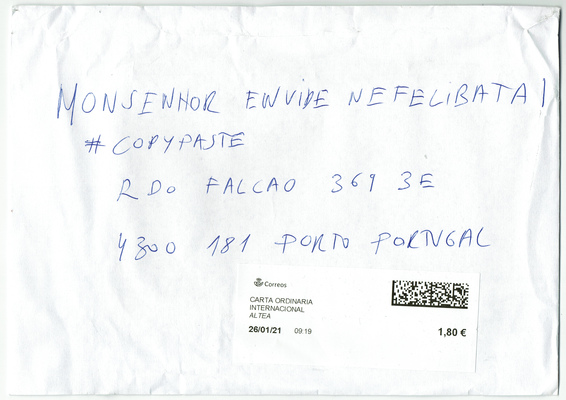 MONSENHOR ENVIDE NEFELIBATA
#COPYPASTE
R DO FALCAO 369 3E
4300 181 PORTO PORTUGAL
Correos
CARTA ORDINARIA
INTERNACIONAL
ALTEA
26/01/21 09:19
1,80 €